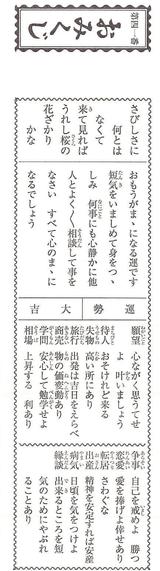 第四一番
おみくじ
さびしさに
何とは
なくて
来て見れば
うれし桜の
花ざかり
かな
おもうがまゝになる運です
短気をいましめて身をつゝ
しみ 何事にも心静かに他
人とよく〳〵相談して事を
なさい すべて心のまゝに
なるでしょう
運勢 大吉
願望 心ながく思うてせ
よ 叶いましょう
待人 おそけれど来る
失物 高い所にあり
旅行 出発は吉日をえらべ
商売 物の価変動あり
学問 安心して勉学せよ
相場 上昇する 利あり
争事 自己を戒めよ 勝つ
恋愛 愛を捧げよ倖せあり
転居 さわぐな
出産 精神を安定すれば安産
病気 日頃を気をつけよ
縁談 出来るところを短
気のためにやぶれ
ることあり